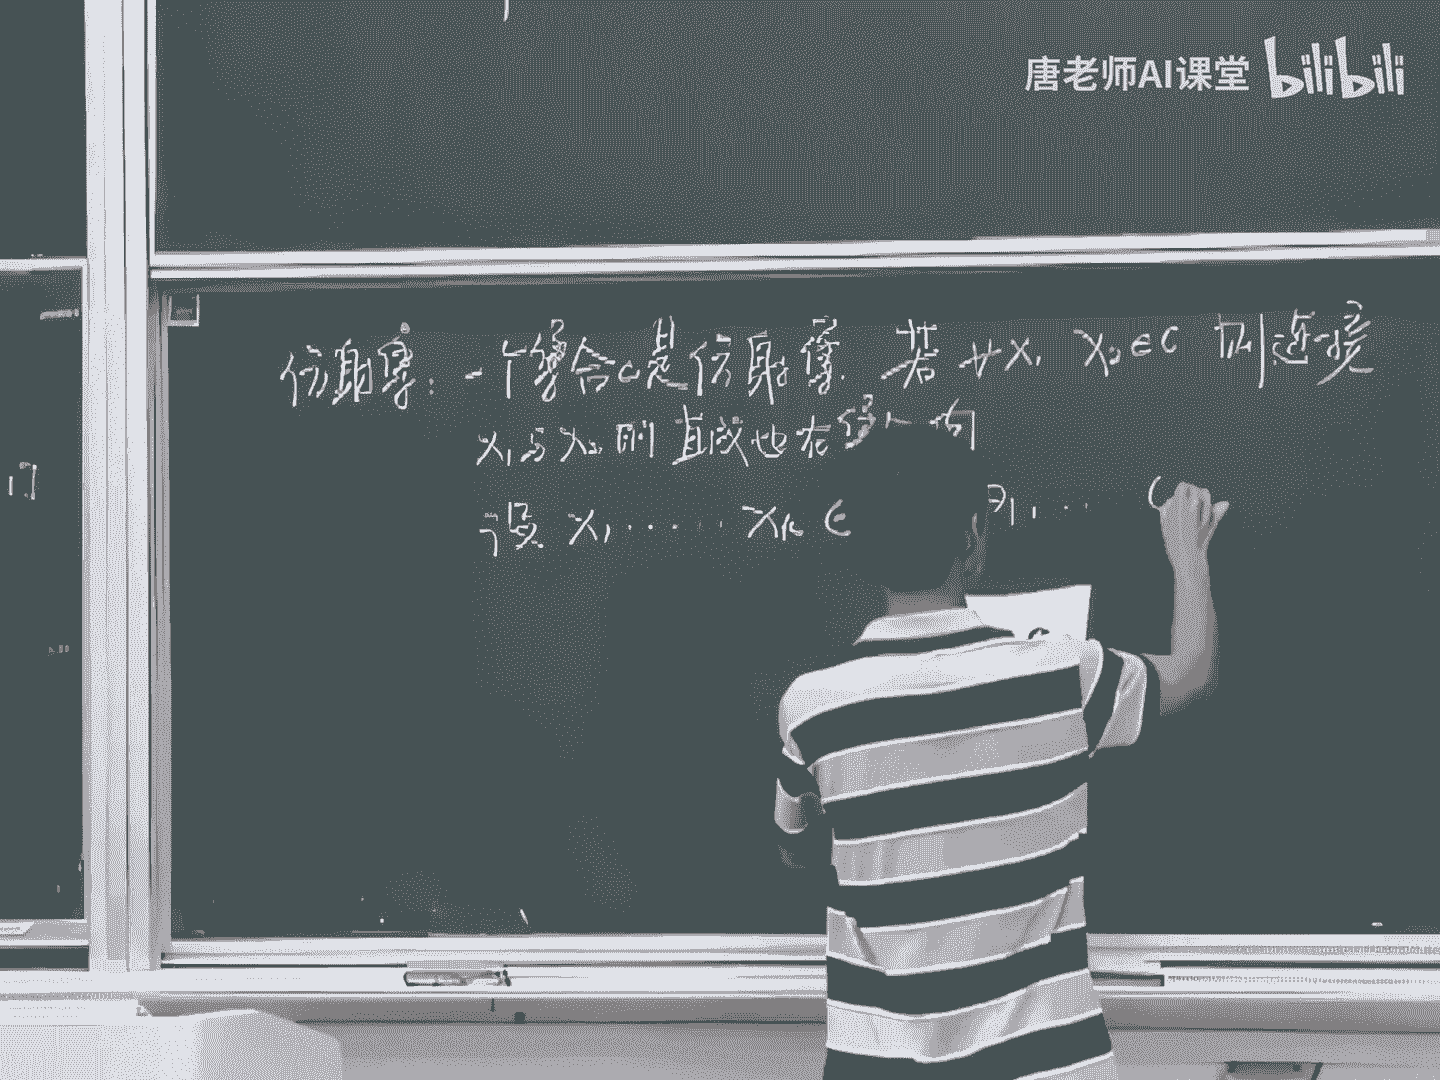 唐老师AI课堂 bilibili
仿射集：一个集合C是仿射集. 若 ∀ x₁ x₂ ∈ C 则连接
x₁与x₂ 的直线也在集 内
设 x₁ ..... xₖ ∈ θ₁, ...